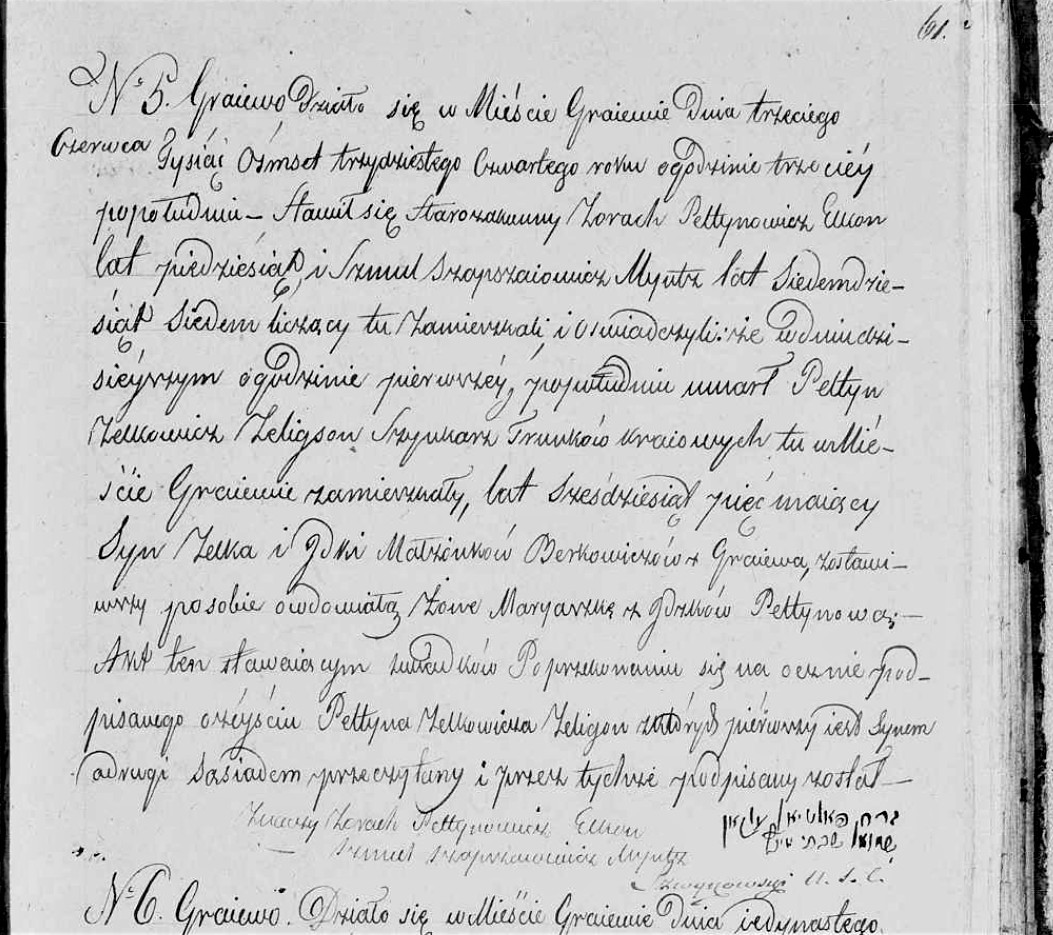 61.
No 5. Graiewo Działo się w Mieście Graiewie Dnia trzeciego
Czerwca Tysiąc Ośmset trzydziestego Czwartego roku o godzinie trzeciéy
popołudniu – Stawił się Starozakonny Zorach Pettynowicz Elkon
lat piędziesiąt, i Szmul Szapszaiowicz Myntz lat Siedemdzie–
siąt Siedem liczący tu Zamieszkali i oswiadczyli: że w dniu dzi–
sieyszym o godzinie pierwszéy, popołudniu umarł Pettyn
Zelkowicz Zeligson Szynkarz Trunków kraiowych tu w Mie–
ście Graiewie zamieszkały, lat Sześdziesiąt pięć maiący
Syn Zelka i Małżonków Berkowiczów z Graiewa, zostawi–
wszy po sobie owdowiałą Żonę Maryaszkę z Pettynową –
Akt ten stawaiącym Poprzekonaniu się na ocznie pod–
pisanego o ześyściu Pettyna Zelkowicza Zeligon z których pierwszy iest Synem
a drugi Sąsiadem przeczytany i przez tychże podpisany został –
Zorach Pettynowicz Elkon
Szmul Szapszaiowicz Myntz
שמואל שבתי
U. S. C.
No 6. Graiewo. Działo się w Mieście Graiewie Dnia iedynastego